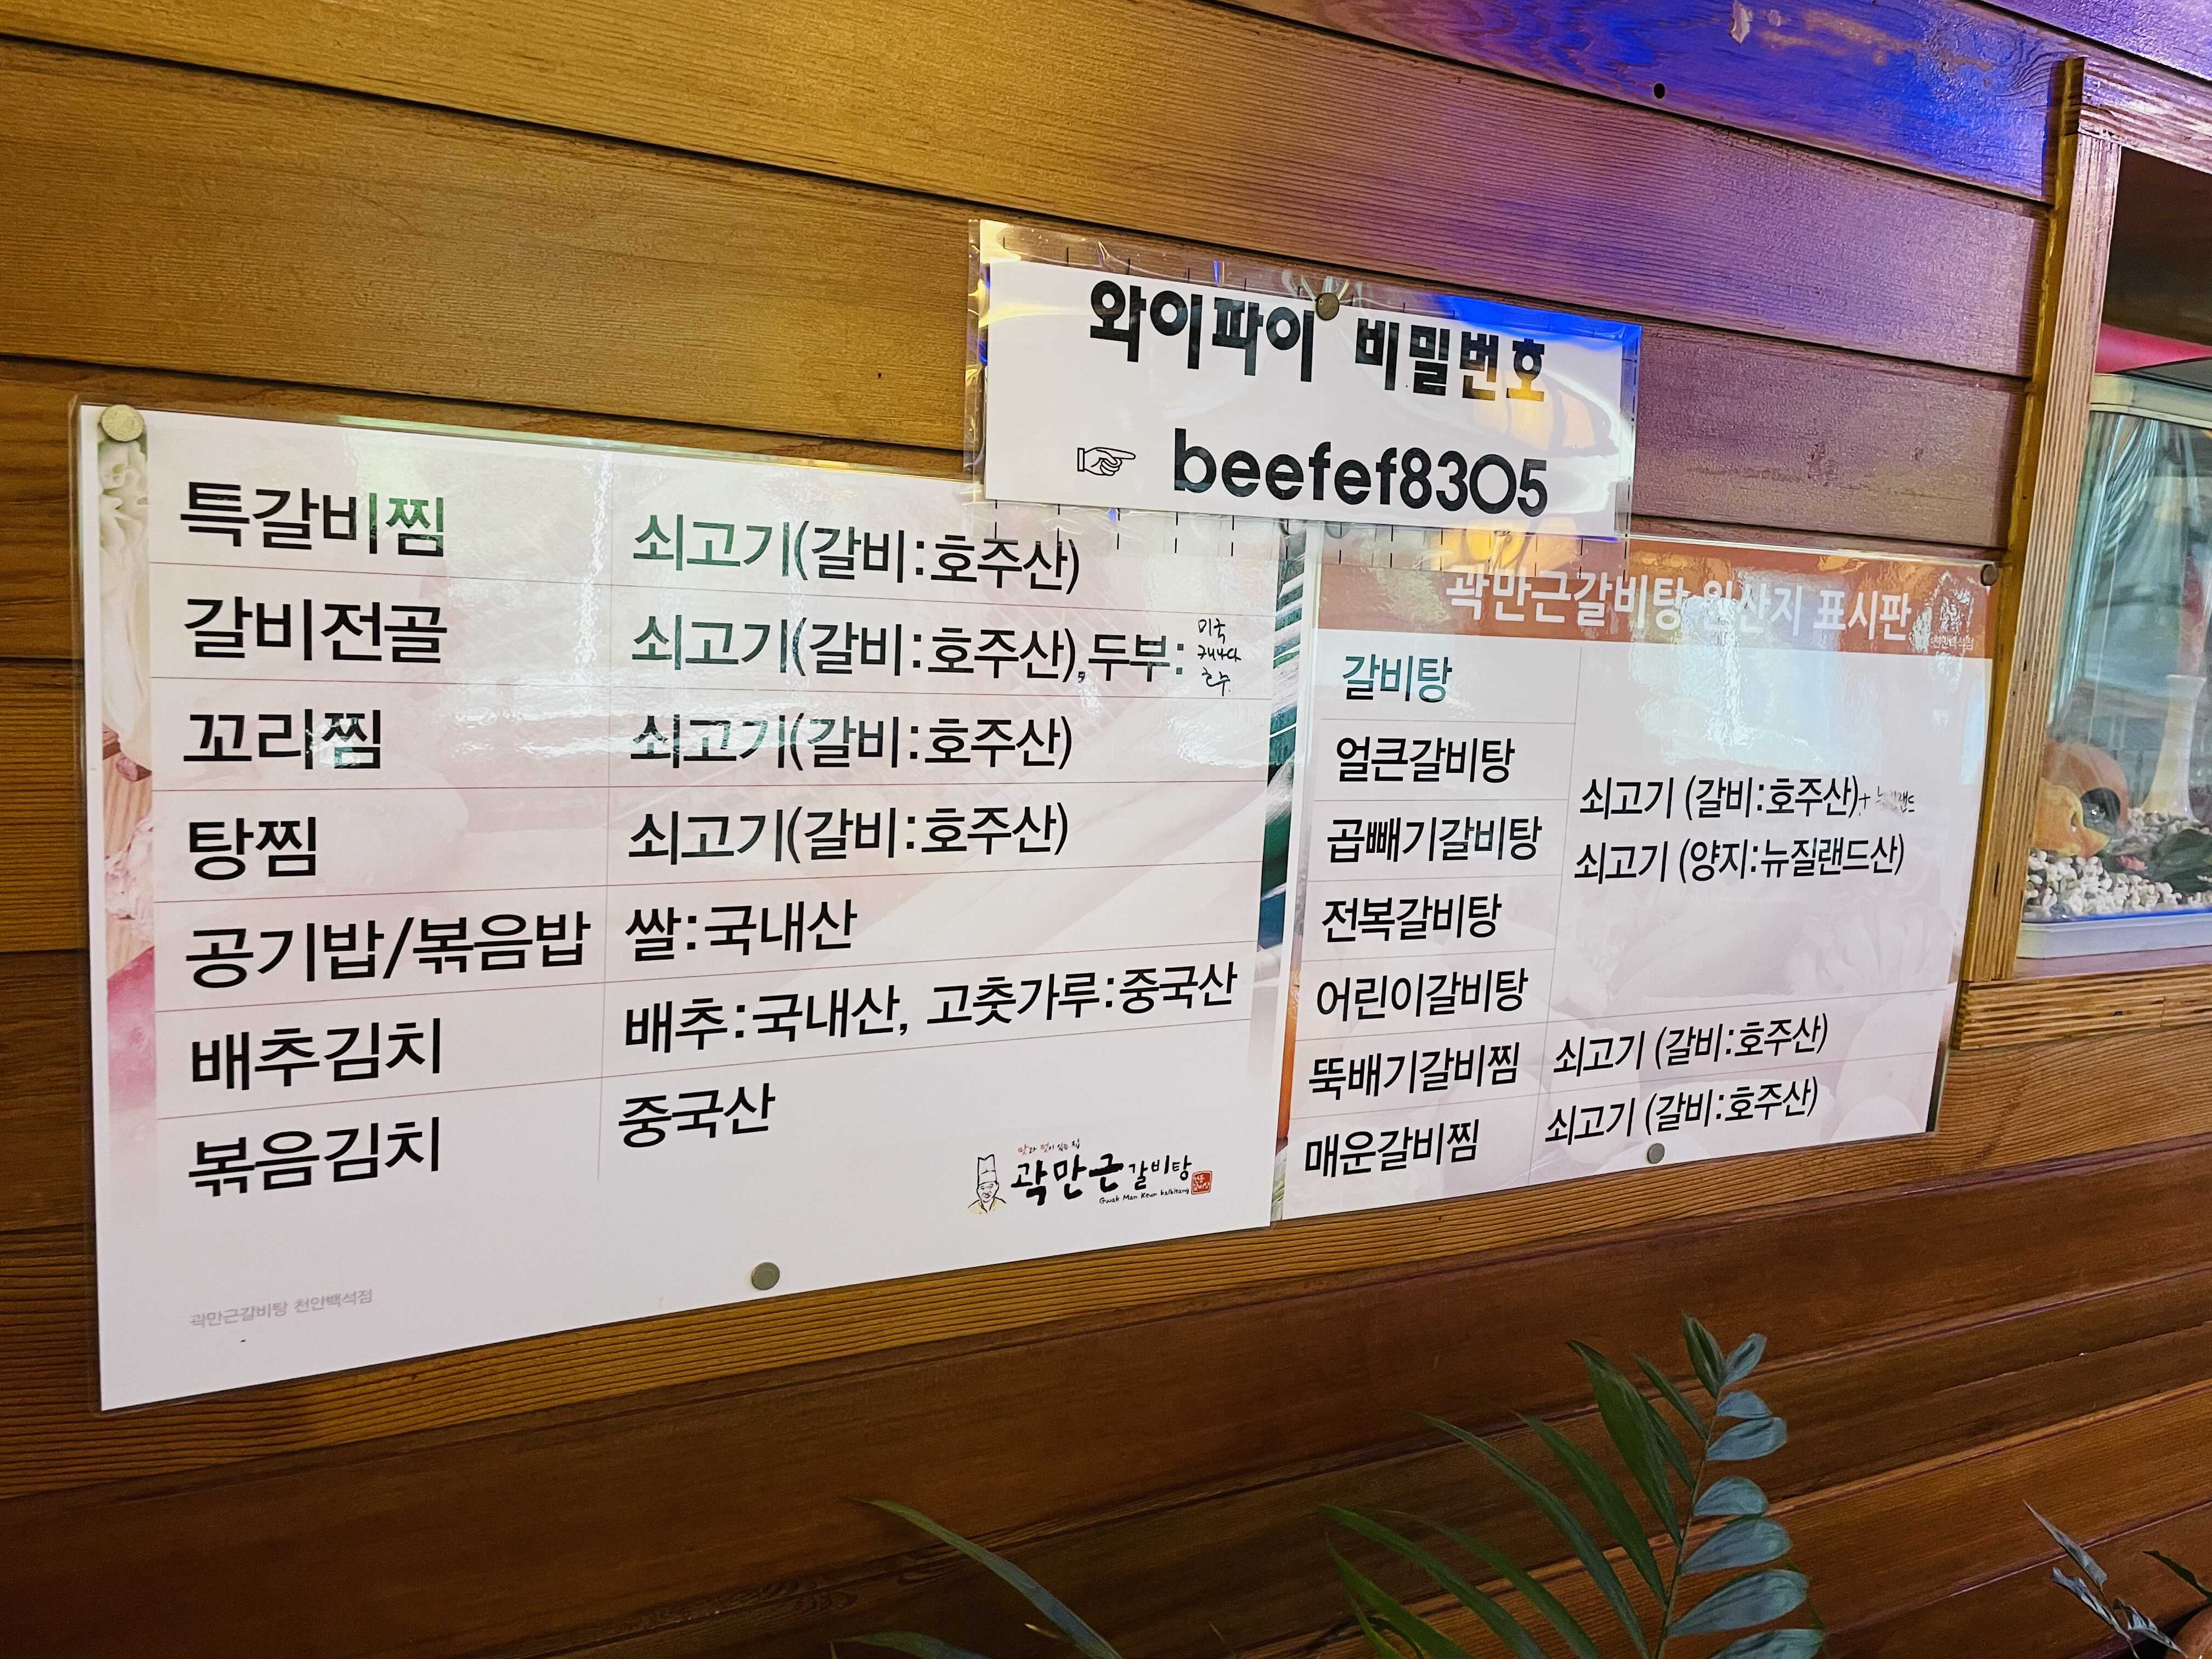 와이파이 비밀번호
☞ beefef8305
특갈비찜 쇠고기(갈비:호주산)
갈비전골 쇠고기(갈비:호주산),두부: 미국 캐나다 호주
꼬리찜 쇠고기(갈비:호주산)
탕찜 쇠고기(갈비:호주산)
공기밥/볶음밥 쌀:국내산
배추김치 배추:국내산, 고춧가루:중국산
볶음김치 중국산
맛과 멋이 있는 집
곽만근갈비탕
Gwak Man Keun kalbitang
곽만근갈비탕 천안백석점
곽만근갈비탕 원산지 표시판
천안백석점
갈비탕
얼큰갈비탕
곱빼기갈비탕
전복갈비탕
어린이갈비탕
쇠고기 (갈비:호주산)+ 뉴질랜드
쇠고기 (양지:뉴질랜드산)
뚝배기갈비찜 쇠고기 (갈비:호주산)
매운갈비찜 쇠고기 (갈비:호주산)